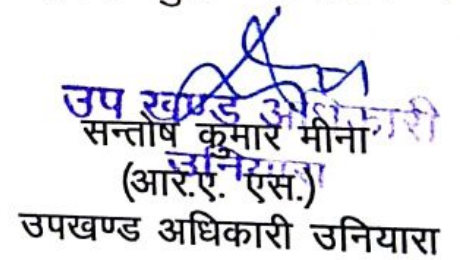 उप खण्ड अधिकारी
सन्तोष कुमार मीना
उनियारा
(आर.ए. एस.)
उपखण्ड अधिकारी उनियारा